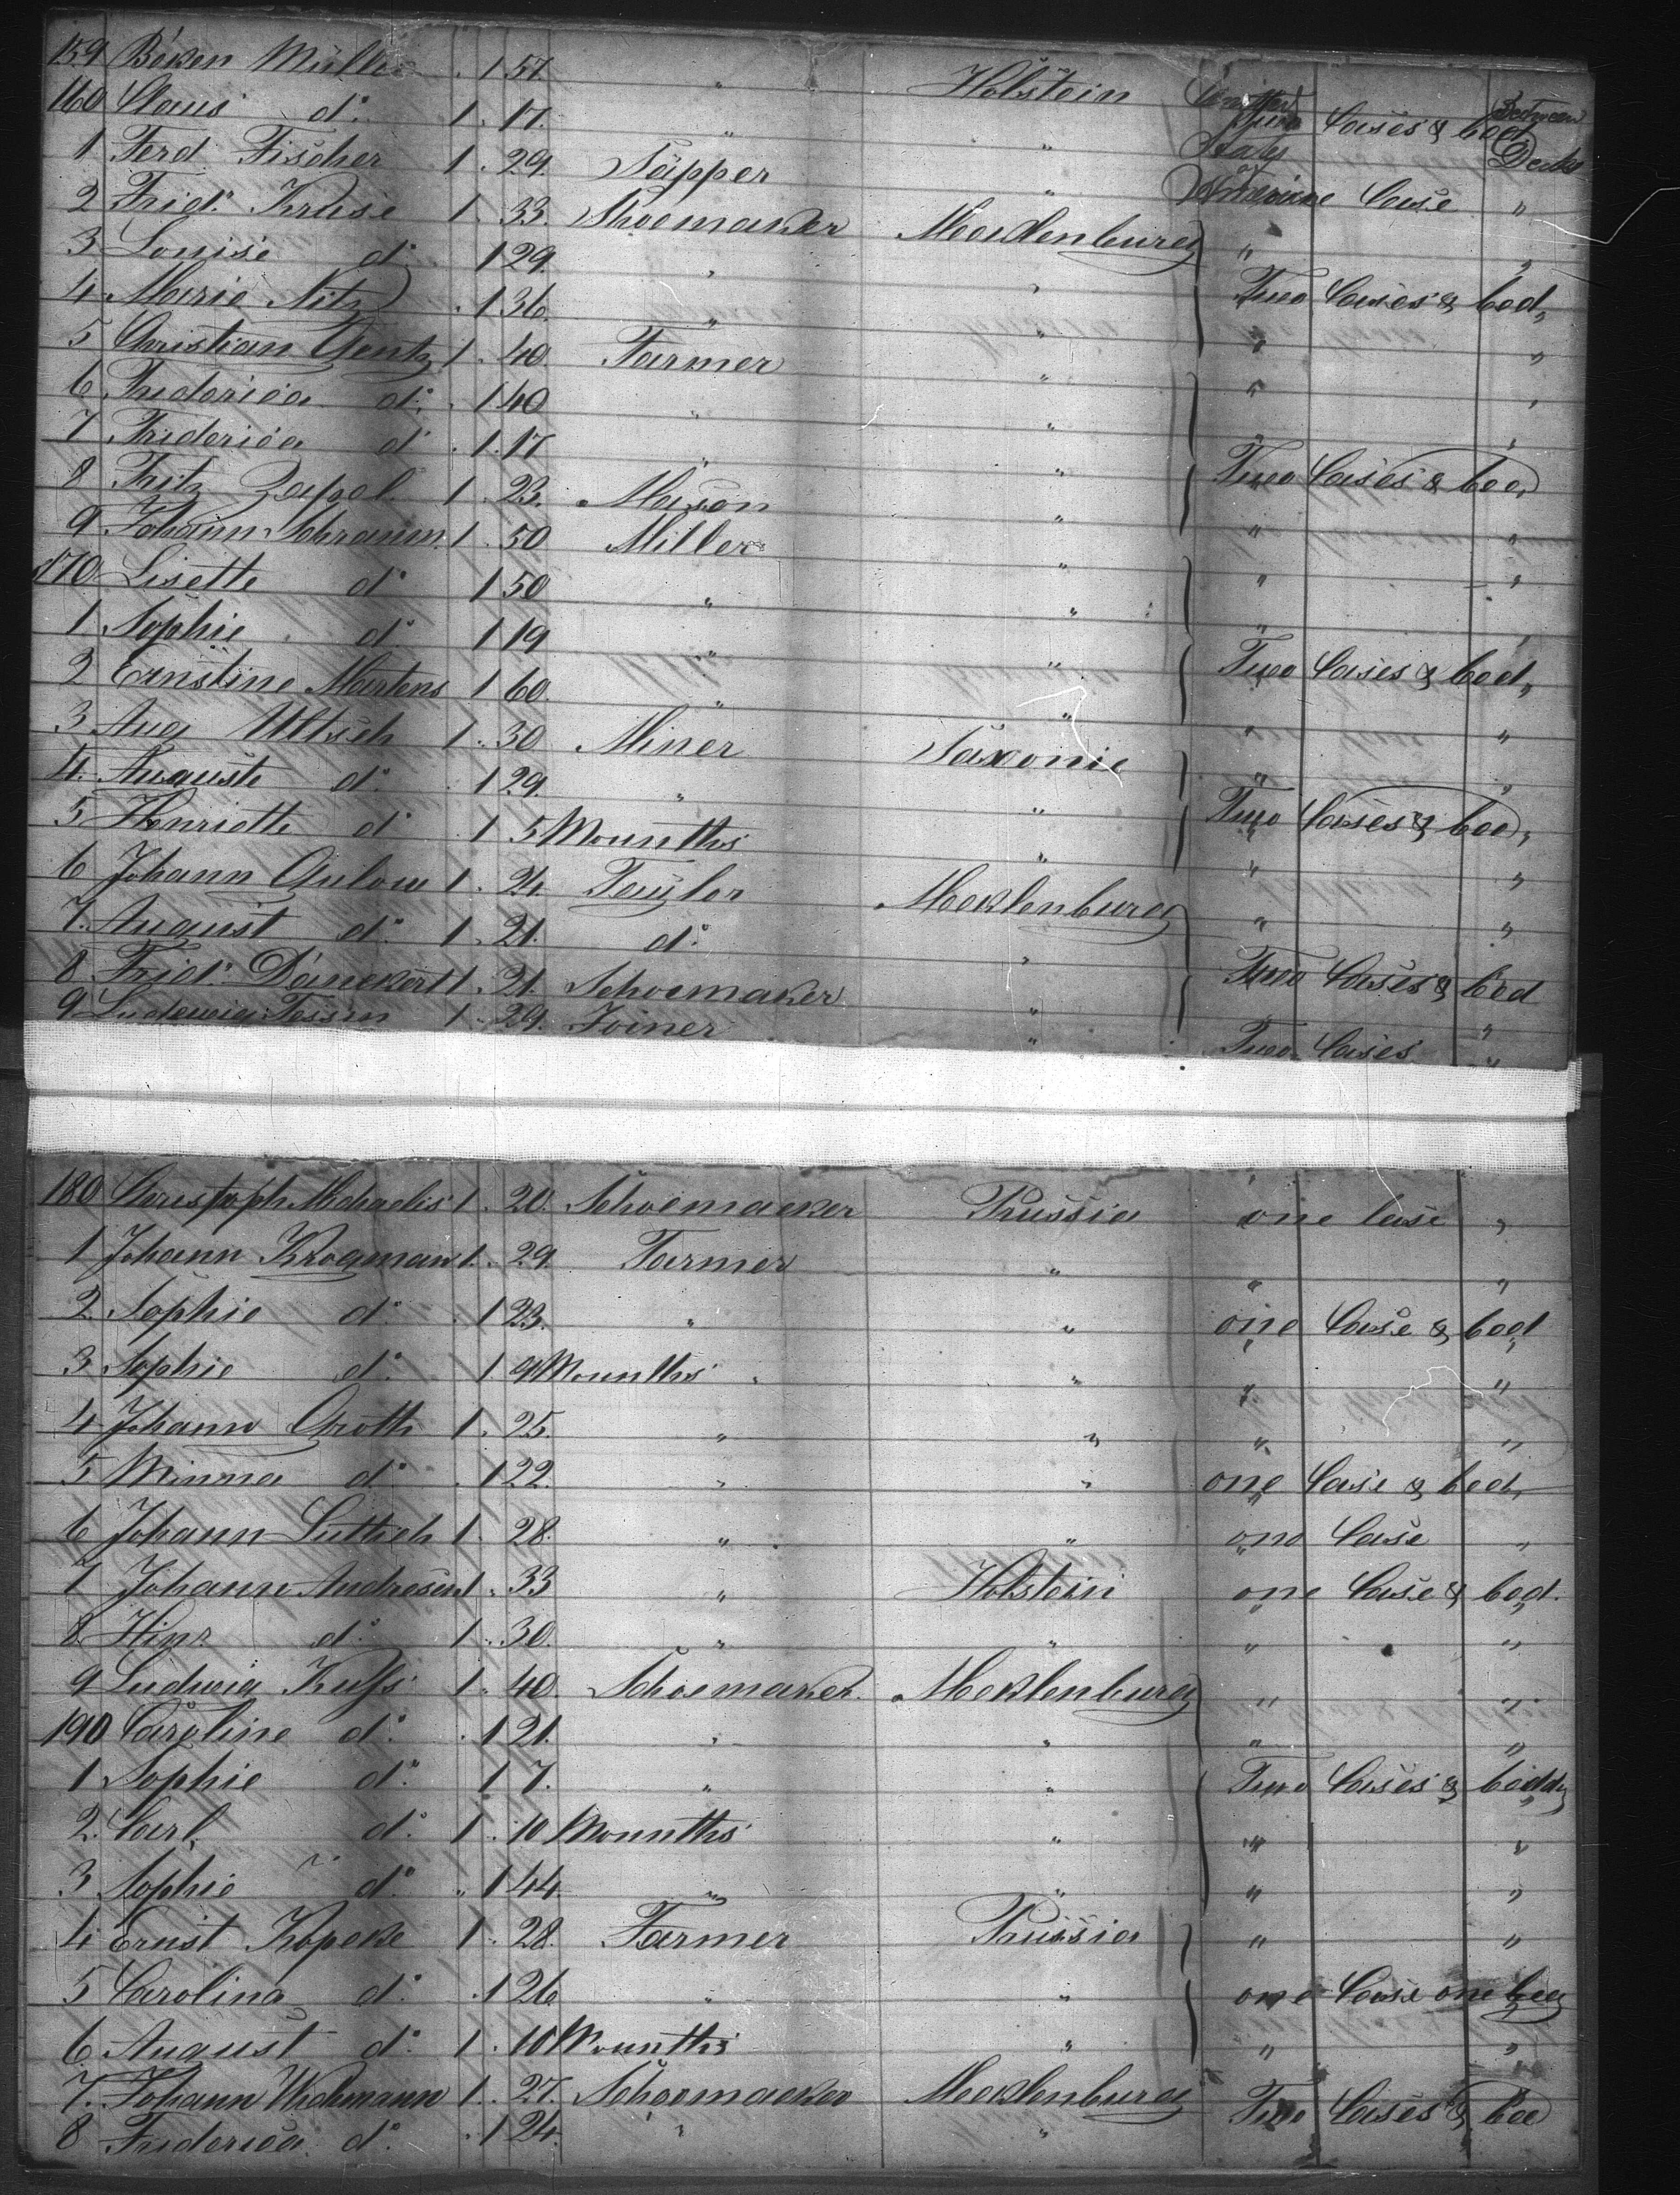 159 Böken Müller . 1 57. " Holstein
160 Claus do 1 . 17. " " Cases & bed Between Decks
1 Ferd. Fischer 1 . 29. Tapper " Case "
2 Frid. Kruse 1 . 33. Shoemaker Mecklenburg " "
3 Louise do 1 29. " " Two Cases & bed "
4 Marie Nitz . 1 36. " " " "
5 Christian Gentz 1 . 40. Farmer " " "
6 Fridericia do . 1 40 " " " "
7 Fridericia do . 1 . 17 " " Two Cases & bed
8 Fritz Zapel 1 . 23. Mason " " "
9 Johann Schramm 1 . 50 Miller " " "
170 Lisette do 1 50 " " " "
1 Sophie do 1 19 " " Two Cases & bed "
2 Ernstine Martens 1 60. " " " "
3 Aug Ultsch 1 . 30 Miner Saxonie " "
4. Auguste do . 1 29. " " Two Cases & bed "
5 Henriette do . 1 5 Mounths " " "
6 Johann Gulow 1 . 24. Taylor Mecklenburg " "
7. August do 1 . 21. do " Two Cases & bed
8 Frid. Dänekert 1 . 21. Schoemaker " "
9 Ludewig Tessin 1 . 29. Joiner " Two Cases "
180 Christoph Michaelis 1 . 20. Schoemacker Prussia one Case "
1 Johann Krogmann 1 . 29. Farmer " " "
2. Sophie do . 1 23. " " one Case & bed "
3 Sophie do 1 . 9 Mounths " " "
4 Johann Groth 1 . 25. " " " "
5 Minna do . 1 22. " " one Case & bed "
6 Johann Luttich 1 . 28. " " one Case "
7 Johann Andresen 1 . 33 " Holstein one Case & bed.
8 Hinr do 1 . 30. " " " "
9 Ludwig Kufs 1 . 40. Schoemaker Mecklenburg " "
190 Caroline do . 1 21. " " " "
1 Sophie do 1 7. " " Two Cases & bedd "
2. Carl do 1 . 10 Mounths " " "
3 Sophie do . 1 44. " " " "
4 Ernst Kopeke 1 . 28. Farmer Prussia " "
5 Carolina do . 1 26 " " one Case one bed
6 August do 1 . 10 Mounths " " "
7. Johann Wichmann 1 . 27. Schoemacker Mecklenburg Two Cases & bed
8 Fridericia do . 1 24. " "